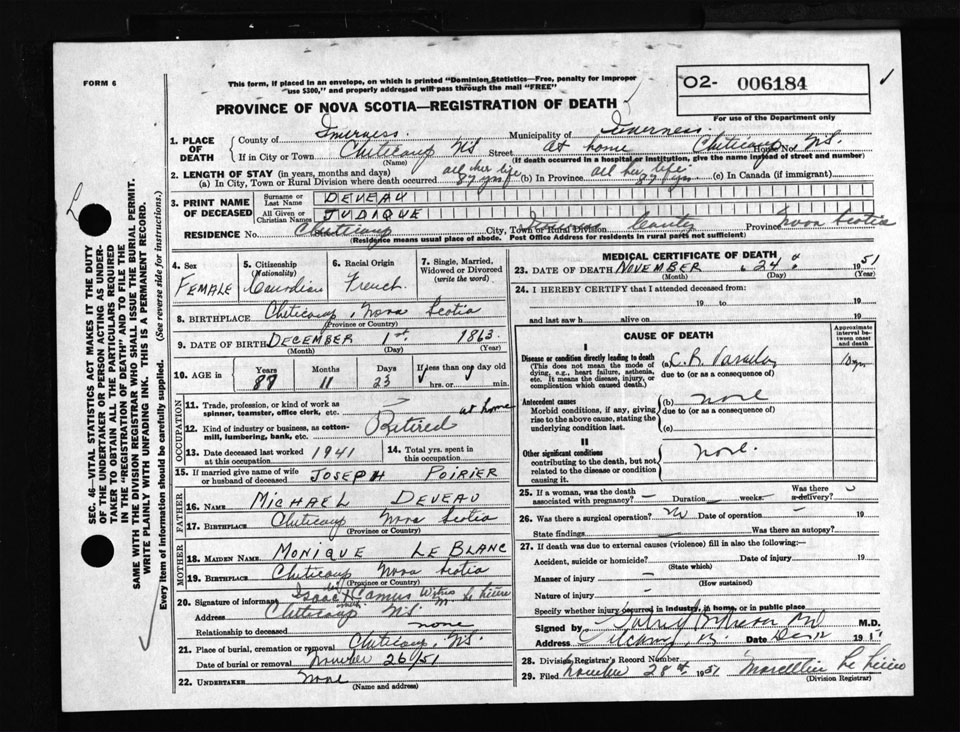 FORM 6
This form, if placed in an envelope, on which is printed "Dominion Statistics—Free, penalty for improper
use $300," and properly addressed will pass through the mail "FREE"
O2- 006184
For use of the Department only
PROVINCE OF NOVA SCOTIA—REGISTRATION OF DEATH
SEC. 46—VITAL STATISTICS ACT MAKES IT THE DUTY
OF THE UNDERTAKER OR PERSON ACTING AS UNDER-
TAKER TO OBTAIN ALL THE PARTICULARS REQUIRED
IN THE "REGISTRATION OF DEATH" AND TO FILE THE
SAME WITH THE DIVISION REGISTRAR WHO SHALL ISSUE THE BURIAL PERMIT.
WRITE PLAINLY WITH UNFADING INK. THIS IS A PERMANENT RECORD.
Every item of information should be carefully supplied. (See reverse side for instructions.)
1. PLACE OF DEATH County of Inverness. Municipality of Inverness.
If in City or Town Cheticamp NS Street at home House No. Cheticamp NS.
(Name) (If death occurred in a hospital or institution, give the name instead of street and number)
2. LENGTH OF STAY (in years, months and days)
(a) In City, Town or Rural Division where death occurred all her life 87 yrs (b) In Province all her life 87 yrs (c) In Canada (if immigrant)
3. PRINT NAME OF DECEASED Surname or Last Name DEVEAU
All Given or Christian Names JUDIQUE
RESIDENCE No. Cheticamp Street City, Town or Rural Division County Province Nova Scotia
(Residence means usual place of abode. Post Office Address for residents in rural parts not sufficient)
4. Sex FEMALE
5. Citizenship (Nationality) Canadian
6. Racial Origin French.
7. Single, Married, Widowed or Divorced (write the word)
8. BIRTHPLACE Cheticamp, Nova Scotia
(Province or Country)
9. DATE OF BIRTH DECEMBER 1st 1863.
(Month) (Day) (Year)
10. AGE in Years 87 Months 11 Days 23 If less than one day old hrs. or min.
OCCUPATION
11. Trade, profession, or kind of work as spinner, teamster, office clerk, etc. at home
12. Kind of industry or business, as cotton-mill, lumbering, bank, etc. Retired
13. Date deceased last worked at this occupation 1941 14. Total yrs. spent in this occupation
15. If married give name of wife or husband of deceased JOSEPH POIRIER
FATHER
16. NAME MICHAEL DEVEAU
17. BIRTHPLACE Cheticamp Nova Scotia
(Province or Country)
MOTHER
18. MAIDEN NAME MONIQUE LE BLANC
19. BIRTHPLACE Cheticamp Nova Scotia
(Province or Country)
20. Signature of informant Isaac X Camus
Address Cheticamp NS.
Relationship to deceased none
21. Place of burial, cremation or removal Cheticamp, NS.
Date of burial or removal November 26/51
22. UNDERTAKER None
(Name and address)
MEDICAL CERTIFICATE OF DEATH
23. DATE OF DEATH NOVEMBER 24 1951
(Month) (Day) (Year)
24. I HEREBY CERTIFY that I attended deceased from:
19 to 19
and last saw h alive on 19
CAUSE OF DEATH
Approximate interval between onset and death
I
Disease or condition directly leading to death (a)
(This does not mean the mode of dying, e.g., heart failure, asthenia, etc. It means the disease, injury, or complication which caused death.)
due to (or as a consequence of)
Antecedent causes (b) none
Morbid conditions, if any, giving rise to the above cause, stating the underlying condition last.
due to (or as a consequence of)
(c)
II
Other significant conditions none.
contributing to the death, but not related to the disease or condition causing it.
25. If a woman, was the death associated with pregnancy? Duration weeks. Was there a delivery?
26. Was there a surgical operation? No Date of operation 19
State findings Was there an autopsy?
27. If death was due to external causes (violence) fill in also the following:—
Accident, suicide or homicide? Date of injury 19
(State which)
Manner of injury
(How sustained)
Nature of injury
Specify whether injury occurred in industry, in home, or in public place
Signed by M.D.
Address Date 19
28. Division Registrar's Record Number
29. Filed November 28th 1951
(Division Registrar)